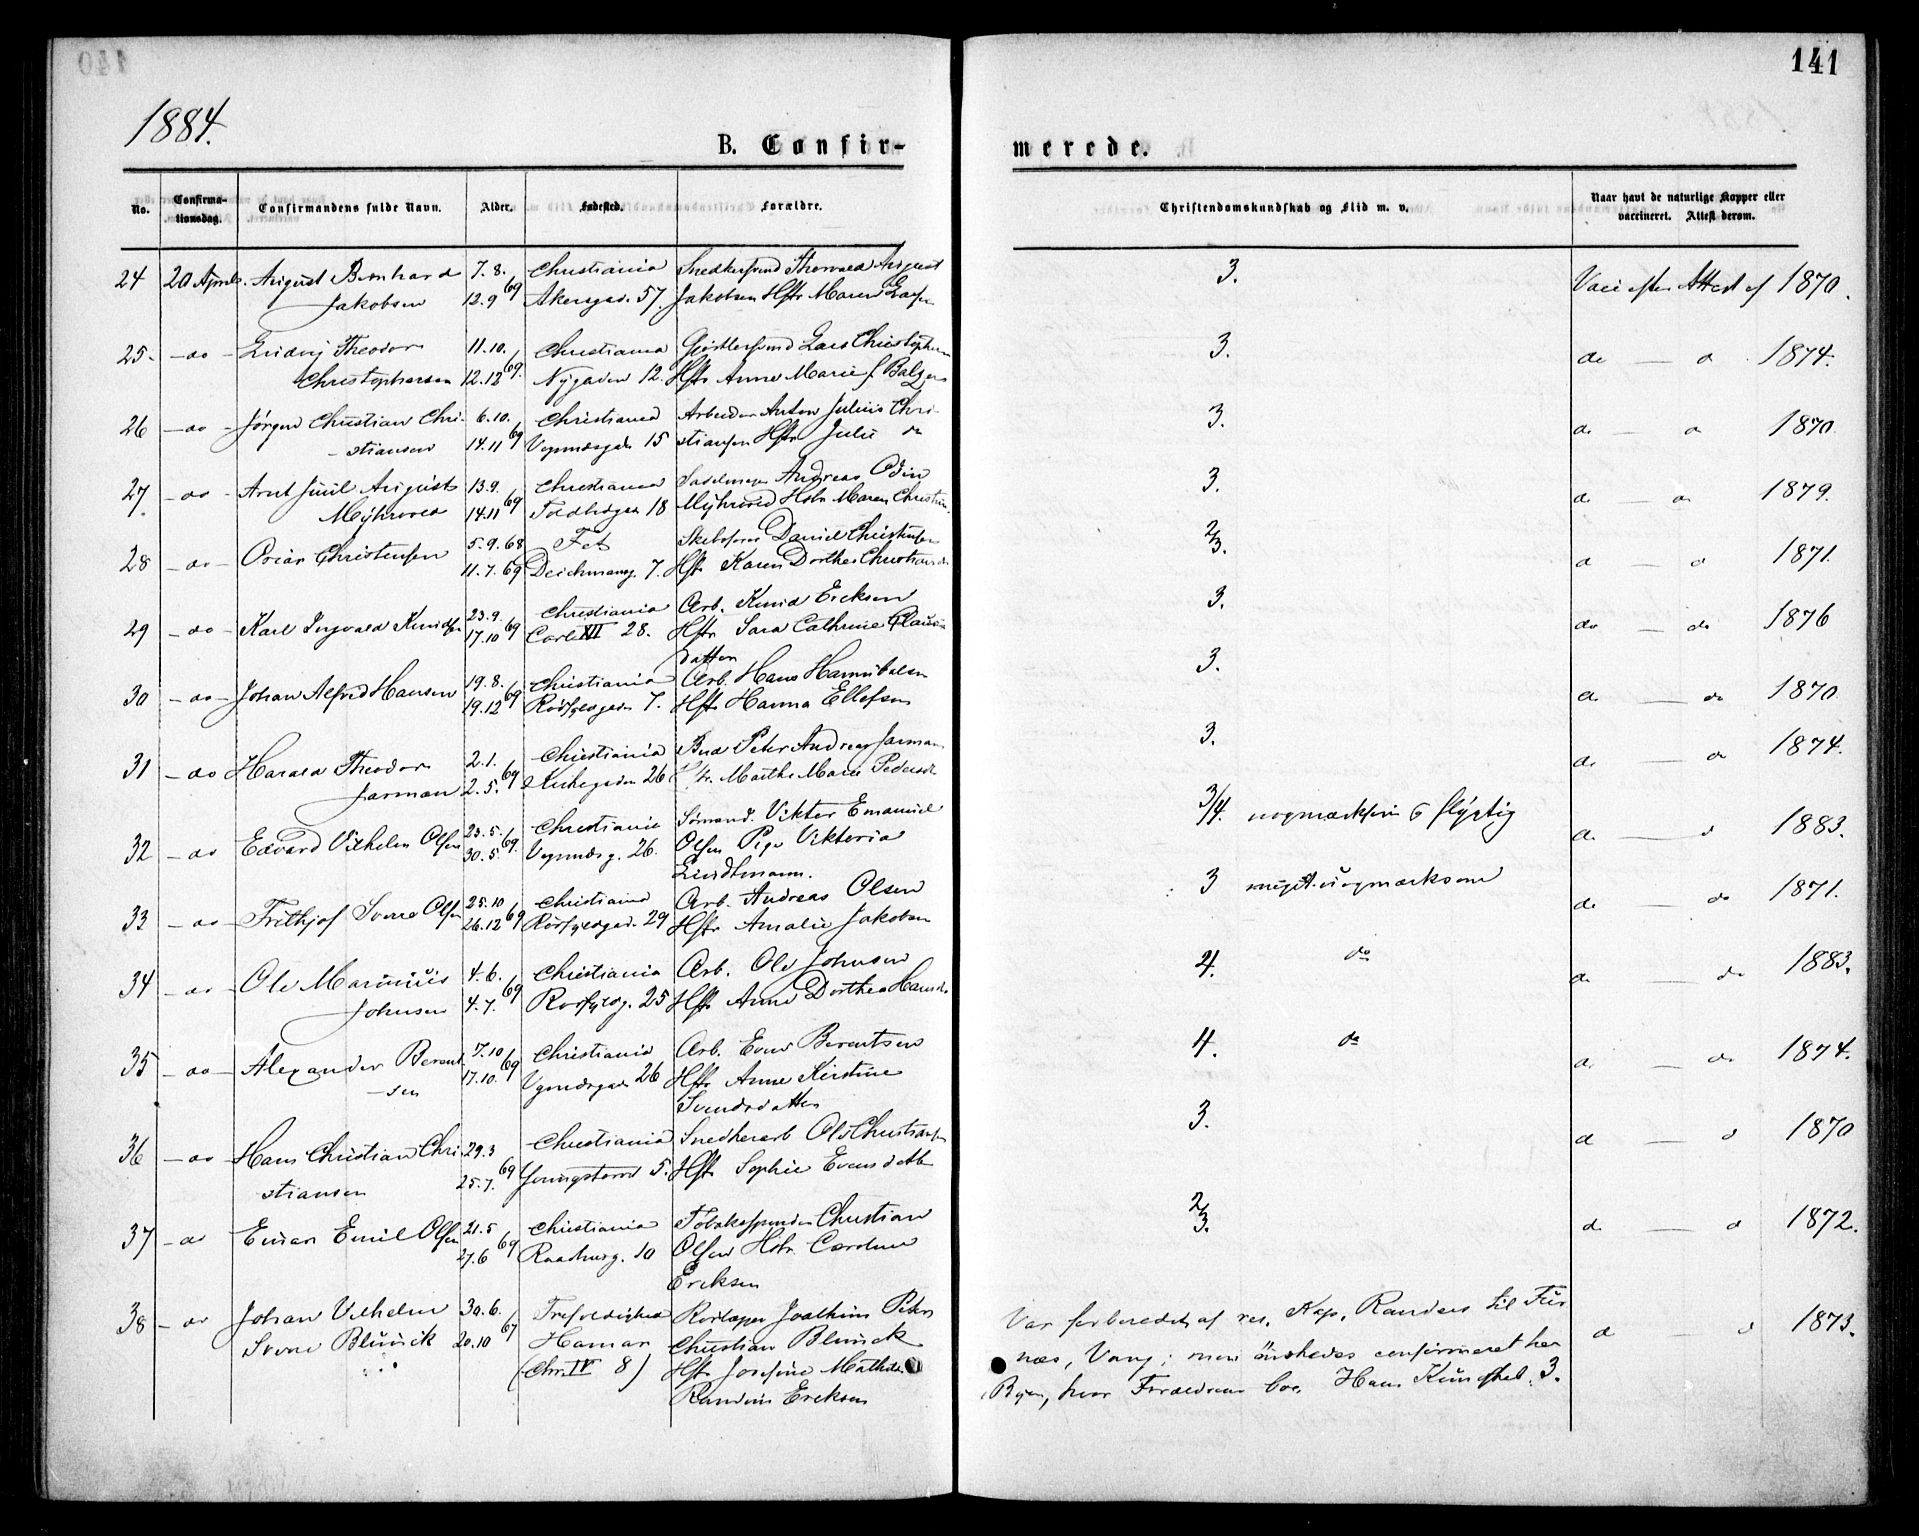 141
1884.
B. Confir-
merede.
No. Confirma-tionsdag. Confirmandens fulde Navn. Alder. Fødested. Forældre. Christendomskundskab og Flid m. v. Naar havt de naturlige Kopper eller vaccineret. Attest derom.
24 20 April August Bernhard 7.8. Christiania Snedkersvend Thorvald August 3. Vacc efter Attest af 1870.
Jakobsen 12.9 69 Akersgad. 57. Jakobsen Hstr Maren
25 - do - Ludvig Theodor 11.10. Christiania Lars Christophersen 3. 1874.
Christophersen 12.12 69. Nygaden 12. Hstr Anne Marie f
26 - do - Jørgen Christian Chri- 6.10. Christiania Arbeider Anton Julius Chri- 3. 1870
stiansen 14.11 69 15 stiansen Hstr Julie do
27 - do - Arnt Juul August 13.9. Christiania Andreas Odin 3. 1879.
Myhrvold 14.11 69 18 Myhrvold Hstr Maren Christin
28 - do - Oscar Christensen 5.9.68 Fet Daniel Christensen 2/3. 1871.
11.7.69 Deichmansg. 7. Hstr Karen Dorthea
29 - do - Karl Ingvald Knudsen 23.9. Christiania Arb. Knud Ericksen 3. do - do 1876
17.10 69 Carl XII 28. Hstr Sara Cathrine
datter
30 - do - Johan Alfred Hansen 19.8. Christiania Arb. Hans Hannibalsen 3. 1870.
19.12 69 7. Hstr Hanna Ellefsen
31 - do Harald Theodor 2.1. Christiania Bud Peter Andreas Jarman 3. 1874.
Jarman 2.5. 69 Kirkegaden 26 Marthe Marie Pedersd
32 - do Edvard Vilhelm Olsen 23.5. Christiania Sømand. Viktor Emanuel 3/4. uopmærksom & flygtig 1883.
30.5. 69. 26. Olsen Pige Viktoria
Lindtmann.
33 - do - Frithjof Sverre Olsen 25.10 Christiania Arb. Andreas Olsen 3 meget uopmærksom 1871.
26.12 69 29 Hstr Amalie Jakobsen
34 - do - Ole Marinius 4.6. Christiania Arb. Ole Johnsen 4. do 1883.
Johnsen 4.7. 69 25 Hstr Anne Dorthea
35 - do - Alexander Berent 7.10 Christiania Arb. Even Berentsen 4. do 1874.
- sen 17.10. 69 26 Hstr Anne Kirstine
Svendsdatter
36 - do - Hans Christian Chri- 29.3 Christiania Snedkerarb Ole Christiansen 3. 1870
stiansen 25.7. 69 Youngstorvet 5. Hstr Sophie Evensdatter
37 - do Einar Emil Olsen 21.5 Christiania Tobaksspinder Christian 2/3. 1872.
27.6 69 Raadhusg. 10 Olsen Hstr Caroline
Ericksen
38 - do Johan Vilhelm 30.6. Trefoldighed Joachim Peter Var forberedet af res. Kap. Randers til Fur 1873.
Sverre Blunck 20.10 67 Hamar Christian Blunck næs, Vang; men ønskedes confirmeret her
(Chr. IV 8) Hstr Josefine Mathilde i Byen, hvor Forældrene boe. Hans Kundskab: 3.
Randine Ericksen